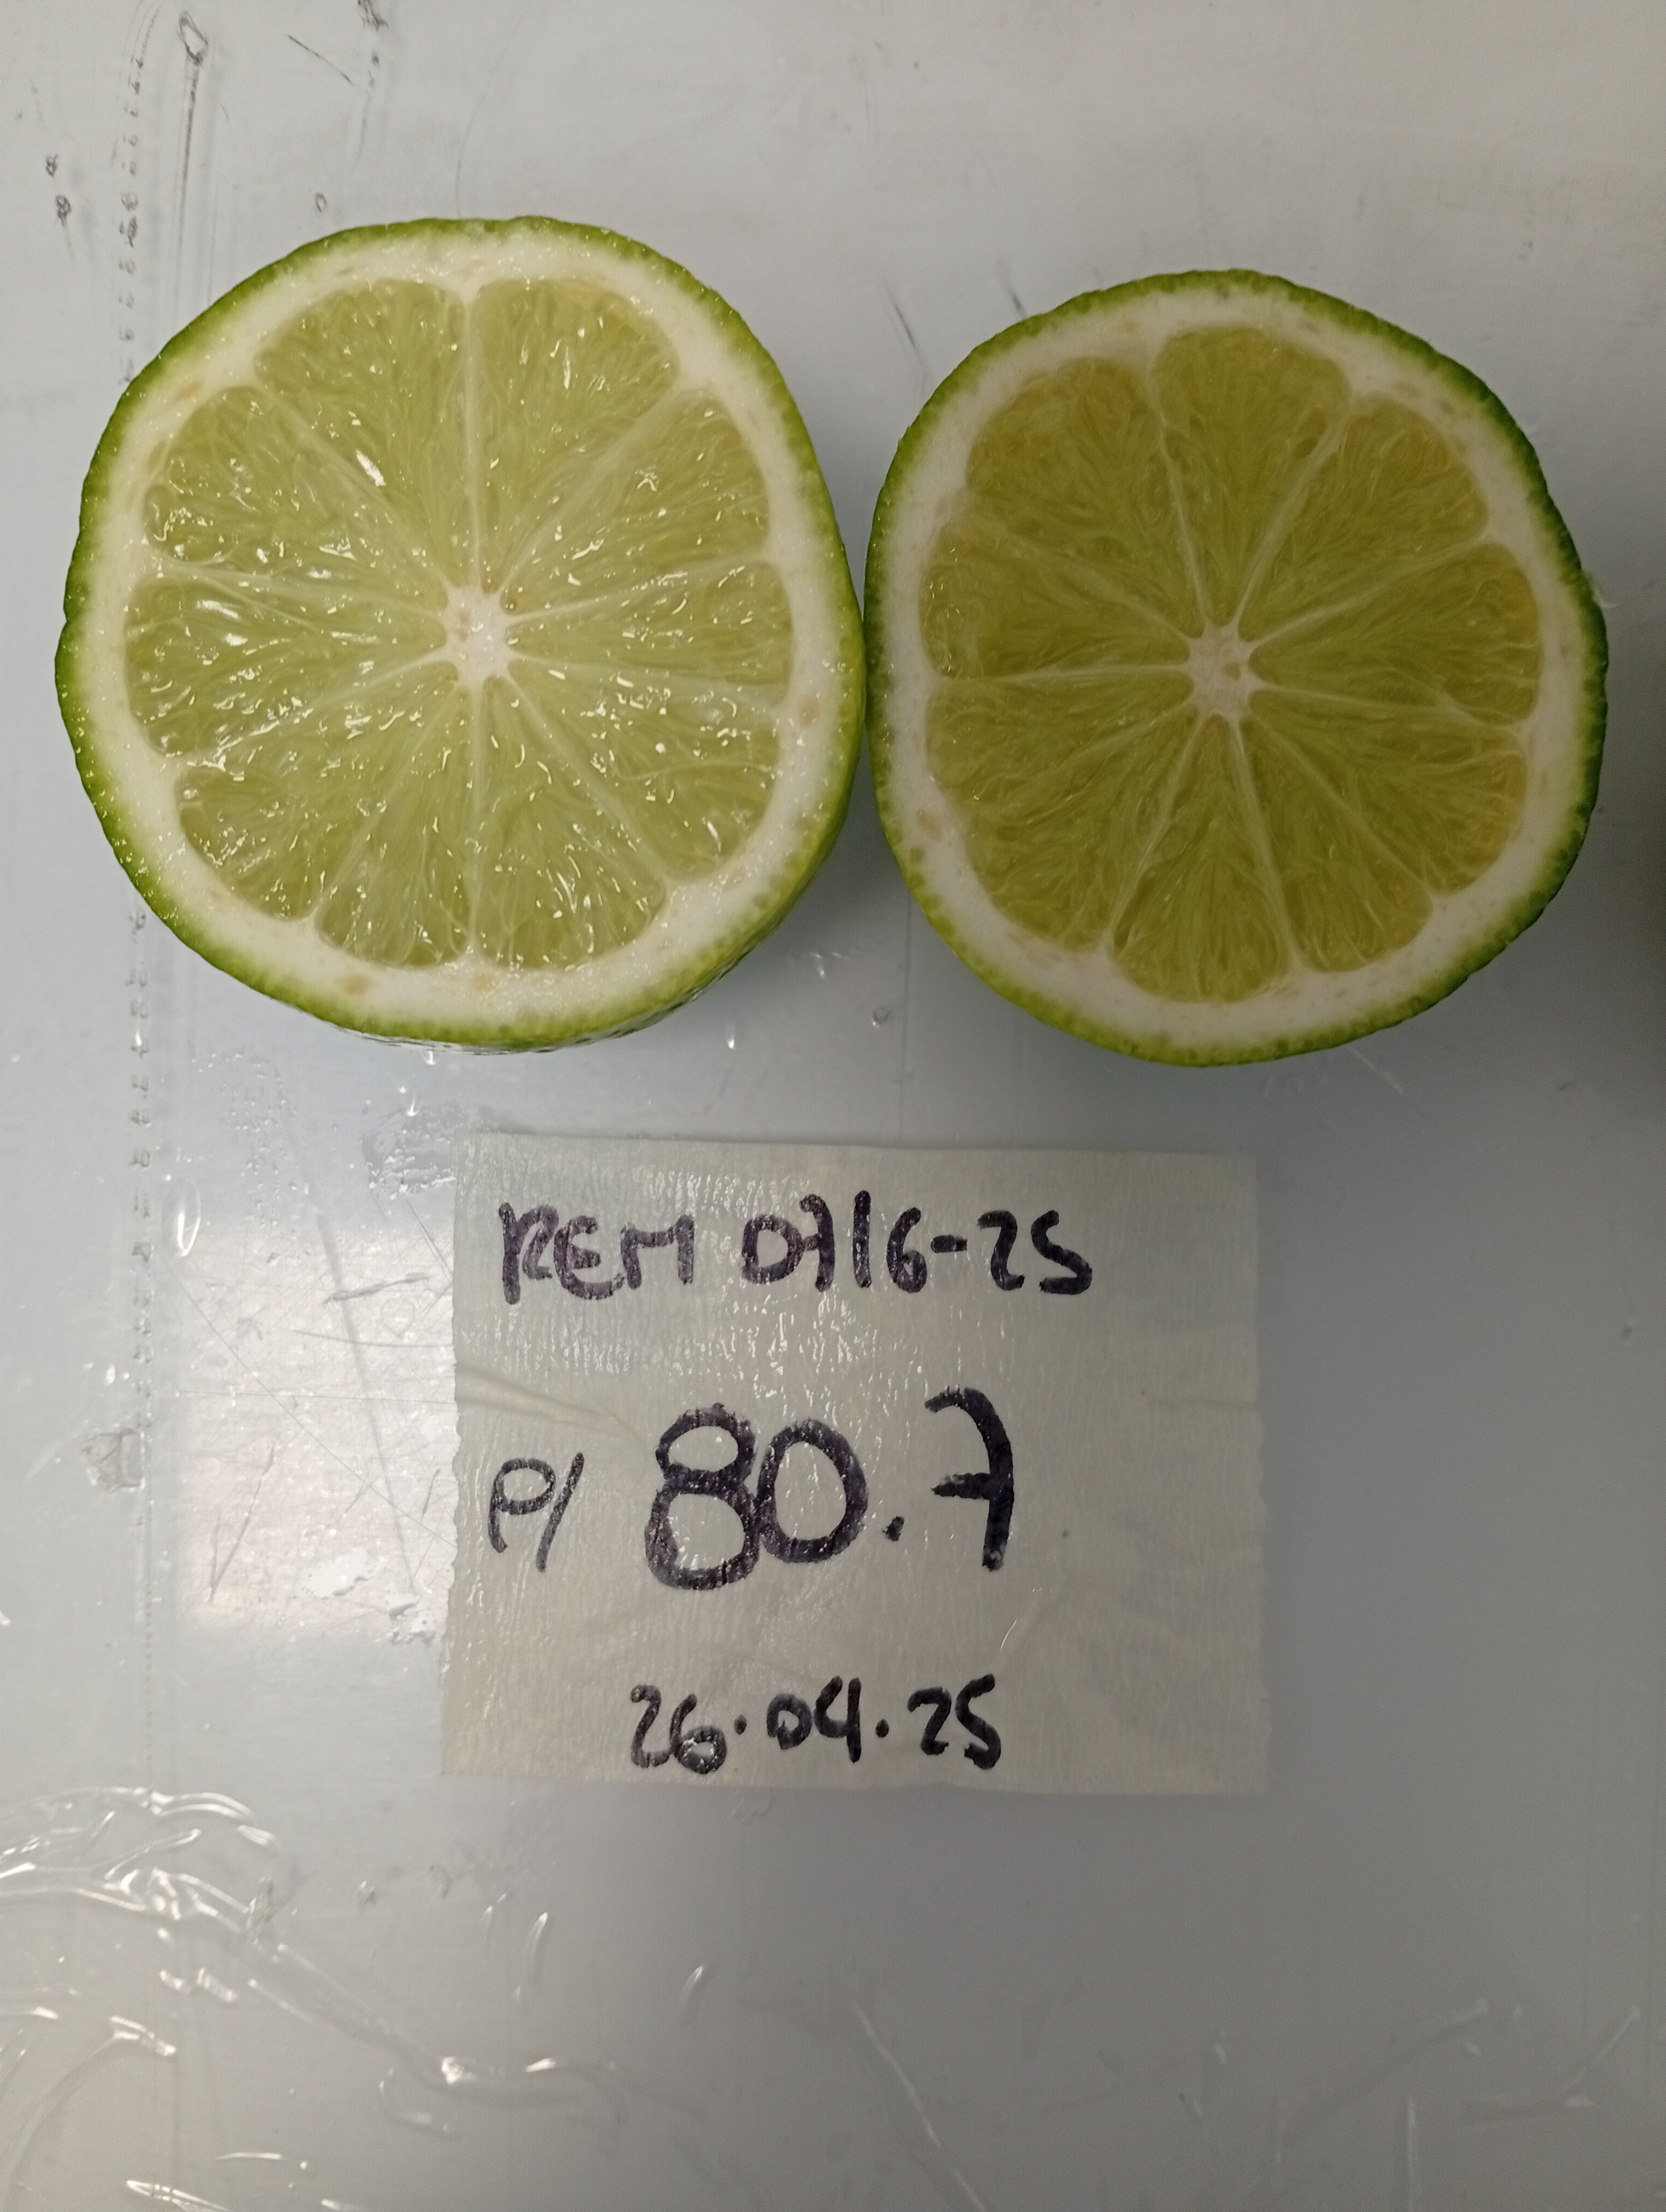 REM 0716-25
P/ 80.7
26.04.25